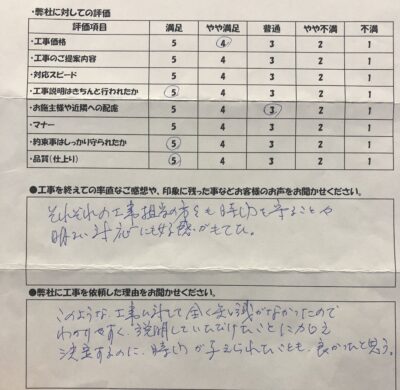 ・弊社に対しての評価
評価項目 満足 やや満足 普通 やや不満 不満
・工事価格 5 4 3 2 1
・工事のご提案内容 5 4 3 2 1
・対応スピード 5 4 3 2 1
・工事説明はきちんと行われたか 5 4 3 2 1
・お施主様や近隣への配慮 5 4 3 2 1
・マナー 5 4 3 2 1
・約束事はしっかり守られたか 5 4 3 2 1
・品質(仕上り) 5 4 3 2 1
●工事を終えての率直なご感想や、印象に残った事などお客様のお声をお聞かせください。
それぞれの工事担当の方々も時間を守ることや
明るい対応にも好感がもてた。
●弊社に工事を依頼した理由をお聞かせください。
このような工事に対して全く知識がなかったので
わかりやすく、説明していただけたことに加え
決定するのに、時間が与えられたことも、良かったと思う。